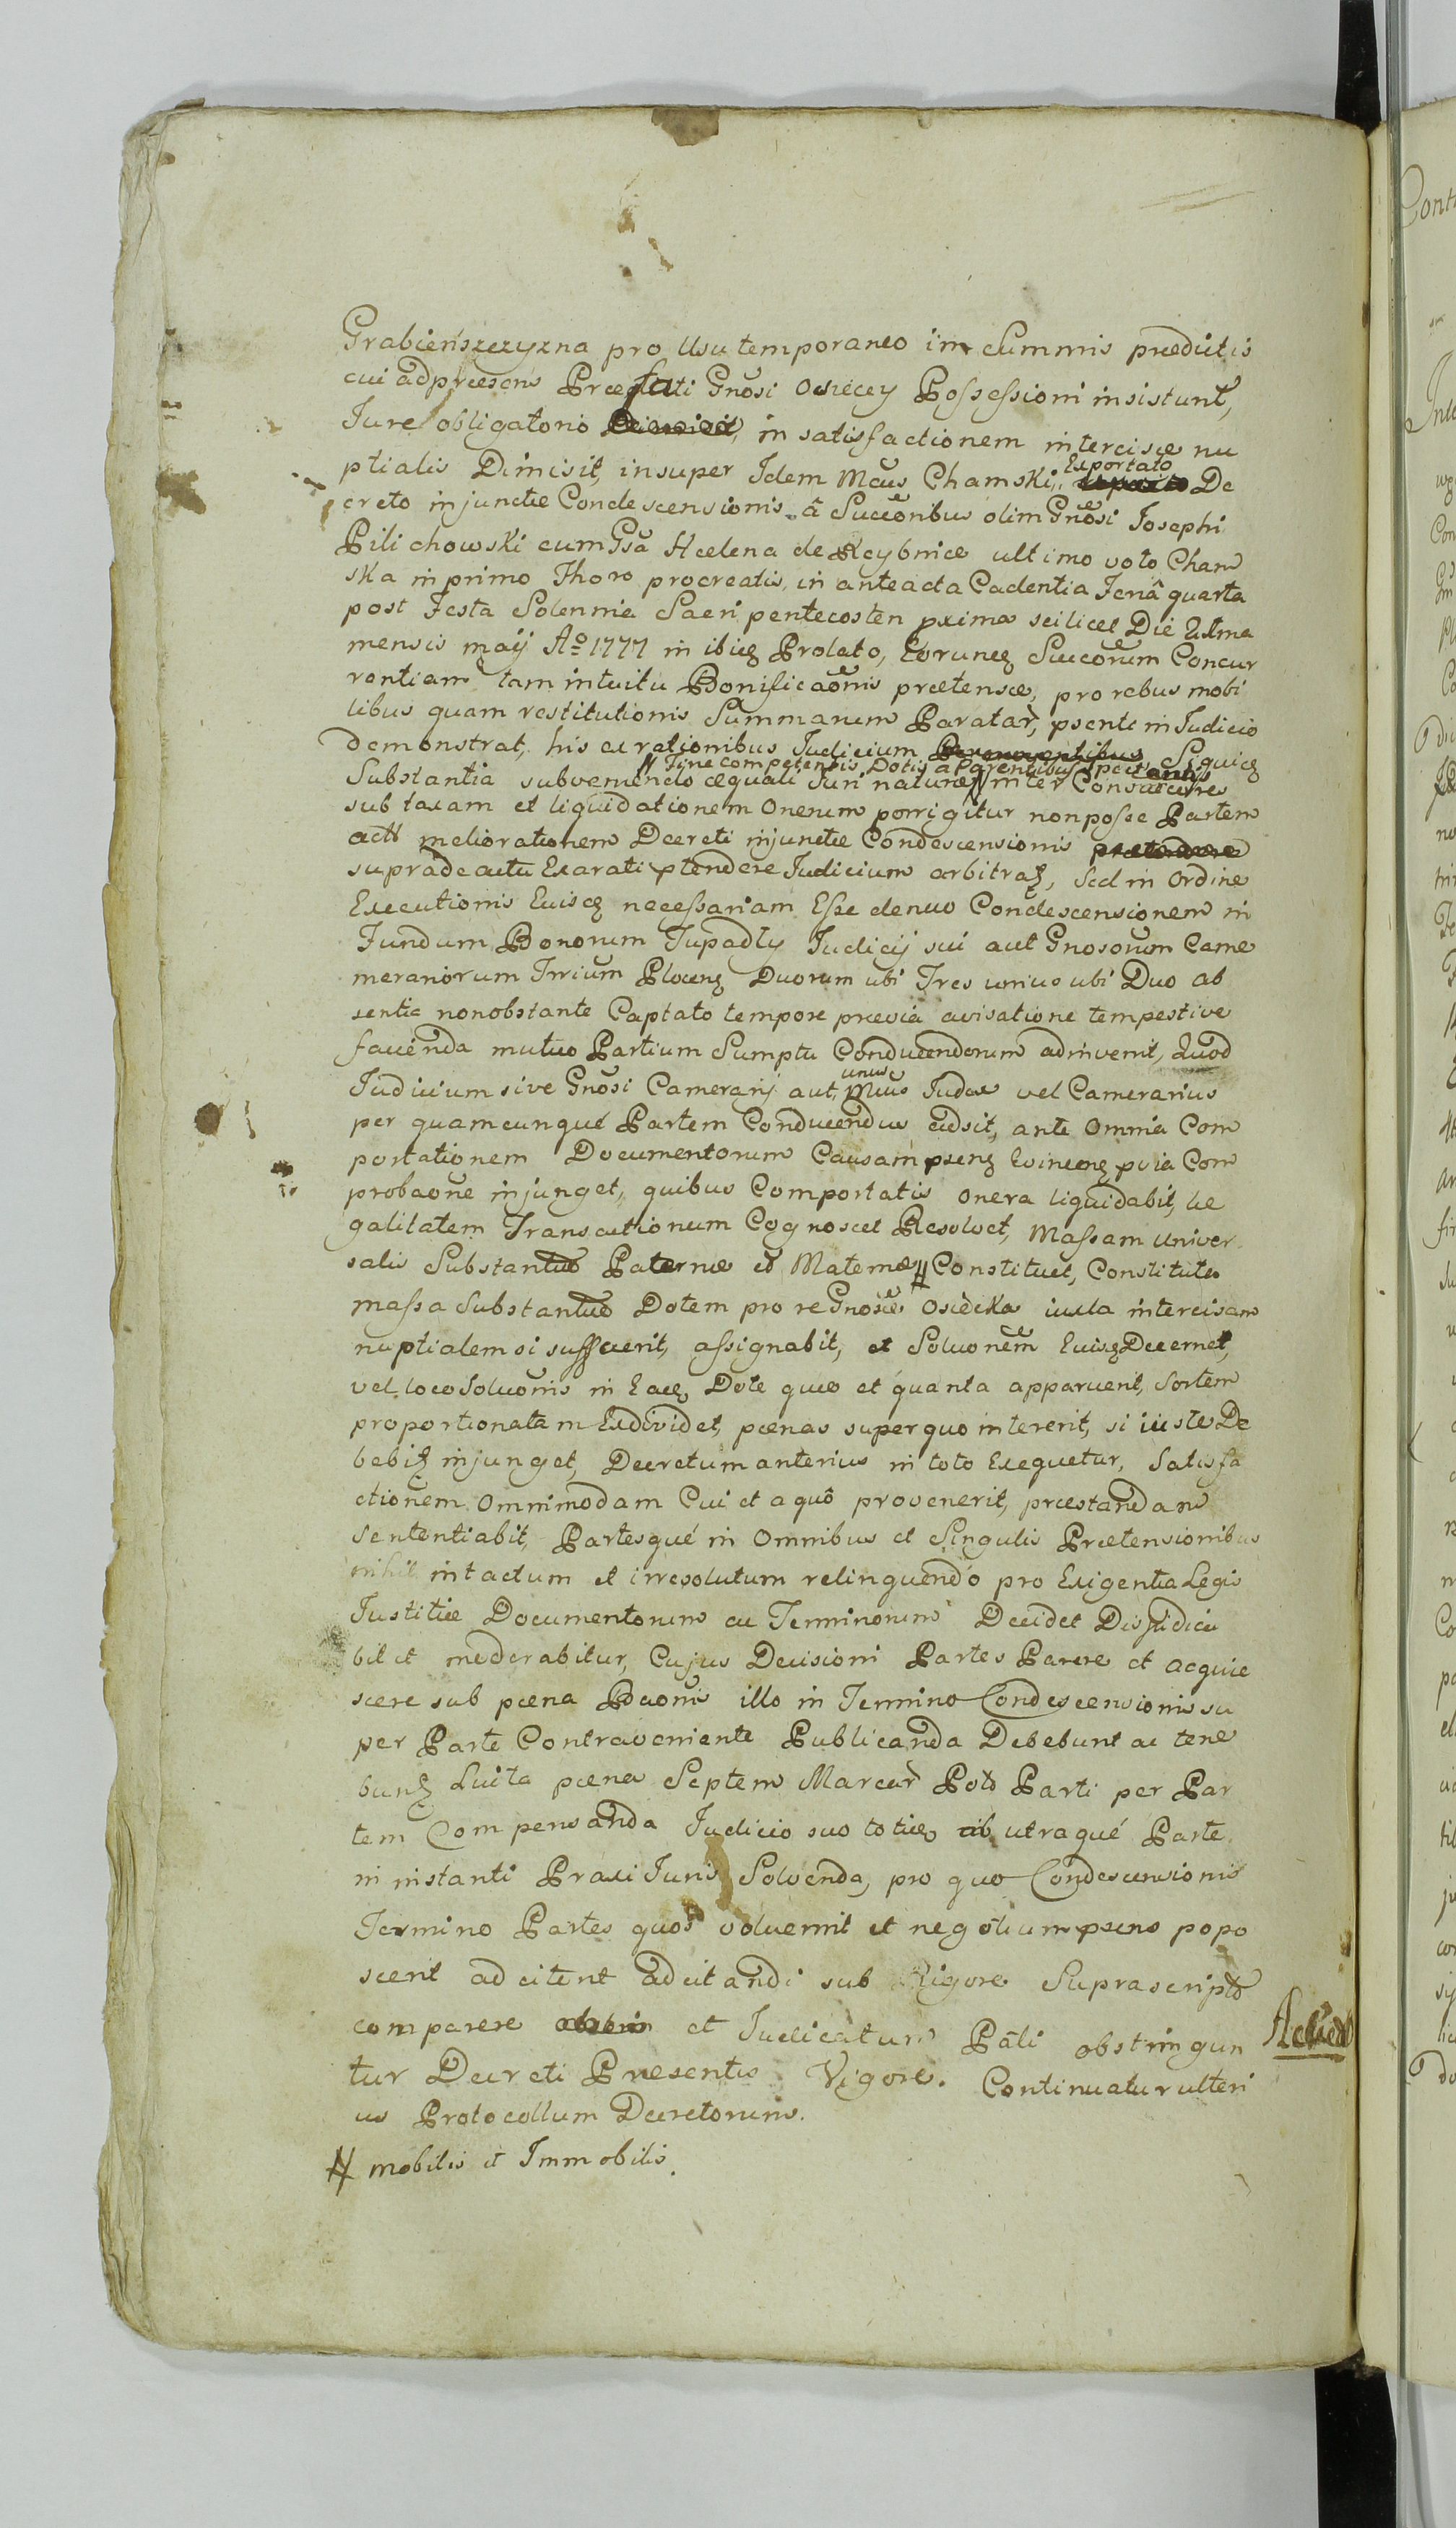 Grabieńszczyzna pro Usu temporaneo in Summis prædictis
cui adpræsens Præfati Gnosi Osiecey Possessioni insistunt,
Jure obligatorio in satisfactionem intercisæ nu
ptialis Dimisit, insuper Idem Mcus Chamski, Exportato De
creto injunctæ Condescensionis â Succoribus olim Gnosi Josephi
Pilichowski cum Gsa Helena de Rcybnice ultimo voto Cham
ska in primo Thoro procreatis, in anteacta Cadentia Feriâ quarta
post Festa Solennia Sacri pentecosten proxima scilicet Die
mensis maÿ Ao 1777 in ibiq Prolato, Eorunq Succorum Concur
rentiam tam intuitu Bonificaonis prætensæ, pro rebus mobi
libus quam restitutionis Summarum Paratar, psenti in Judicio
demonstrat, his ac rationibus Judicium Siquiq
// Fine competentis Dotis a Parentibus
Substantia subveniendo æquali Juri naturæ // inter
sub taxam et liquidationem Onerum porrigitur non posse Partem
act meliorationem Decreti injunctæ Condescensionis prætendere
supradeactu Exarati ptendere Judicium arbitratz, Sed in Ordine
Executionis Euisq necessariam Esse denuo Condescensionem in
Fundum Bonorum Tupadły Judicÿ sui aut Gnosorum Came
merariorum Trrium Plocenz Duorum ubi Tres unius ubi Duo ab
sentia nonobstante Captato tempore prævia avisatione tempestive
facienda mutuo Partium Sumptu Conducendorum adinvenit, Quod
Judicium sive Gnosi Camerarÿ aut unus Mcus Judex vel Camerarius
per quamcunqué Partem Conducendus adsit, ante Omnia Com
portationem Documentorum Causam psenz Evincenz pvia Com
probaone injunget, quibus Comportatis Onera liquidabit, le
galitatem Transactionum Cognoscet Resolvet, Massam univer
salis Substantiæ Paternæ et Maternæ # Constituet, Constituta
massa Substantiæ Dotem pro re Gnosæ Osiecka iuxta intercisam
nuptialem si suffecerit, assignabit, et Soluonem Euisq Decernet,
vel loco Soluonis in Eaq Dote quæ et quanta apparuerit, Sortem
proportionatam Exdividet, pœnas super quo intererit, si iuste De
bebitz injunget, Decretum anterius in toto Exequetur, Satisfa
ctionem Omnimodam Cui et a quô provenerit, præstandam
Sententiabit, Partesqué in Omnibus et Singulis Prætensionibus
nihil intactum et irresolutum relinquendo pro Exigentia Legis
Justitiæ Documentorum ac Terminorum Decidet Disjudica
bit et moderabitur, Cujus Decisioni Partes Parere et acquie
scere sub pœna Pdaonis illo in Termino Condescensionis su
per Parte Contraveniente Publicanda Debebunt ac tene
buntz Luita pœna Septem Marcar Pold Parti per Par
tem Compensanda Judicio suo toties ab utraqué Parte
in instanti Praxi Juris Solvenda, pro quo Condescensionis
Termino Partes quos voluerint et negotium psens popo
scerit adcitent adcitandi sub Rigore Suprascripto
comparere et Judicatum Pati obstringun
tur Decreti Præsentis Vigore. Continuatur ulteri
us Protocollum Decretorum.
# mobilis et Immobilis.